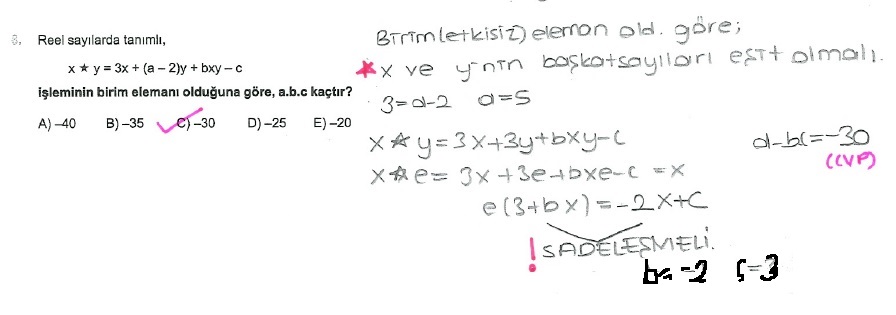 8. Reel sayılarda tanımlı,
x ★ y = 3x + (a – 2)y + bxy – c
işleminin birim elemanı olduğuna göre, a.b.c kaçtır?
A) –40 B) –35 C) –30 D) –25 E) –20
Birim(etkisiz) eleman old. göre;
★x ve y'nin başkatsayıları eşit olmalı.
3=a-2 a=5
x★y=3x+3y+bxy-c
x★e= 3x+3e+bxe-c =x
e(3+bx)=-2x+c
! SADELEŞMELİ.
b=-2 c=3
a-bc=-30
(CVP)